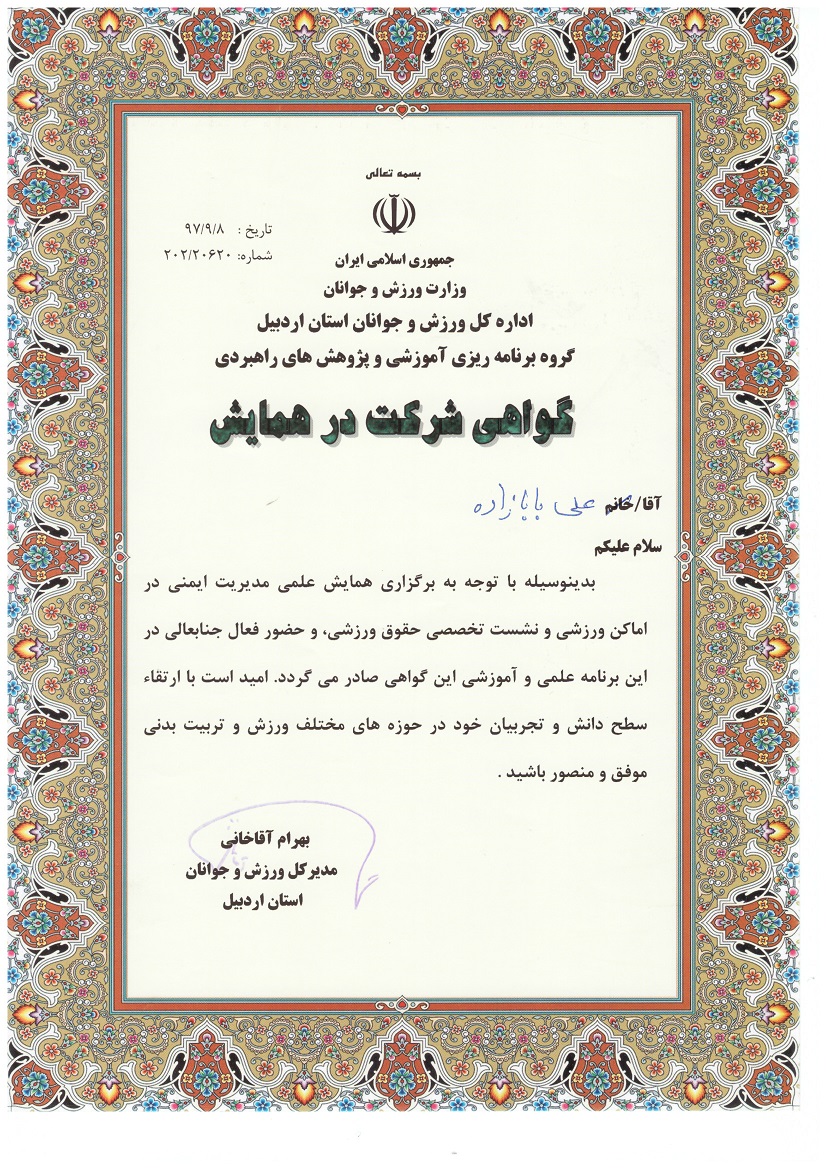 بسمه تعالی
تاریخ : ۹۷/۹/۸
شماره: ۲۰۲/۲۰۶۲۰
جمهوری اسلامی ایران
وزارت ورزش و جوانان
اداره کل ورزش و جوانان استان اردبیل
گروه برنامه ریزی آموزشی و پژوهش های راهبردی
گواهی شرکت در همایش
آقا/خانم علی بابازاده
سلام علیکم
بدینوسیله با توجه به برگزاری همایش علمی مدیریت ایمنی در
اماکن ورزشی و نشست تخصصی حقوق ورزشی، و حضور فعال جنابعالی در
این برنامه علمی و آموزشی این گواهی صادر می گردد. امید است با ارتقاء
سطح دانش و تجربیان خود در حوزه های مختلف ورزش و تربیت بدنی
موفق و منصور باشید .
بهرام آقاخانی
مدیرکل ورزش و جوانان
استان اردبیل